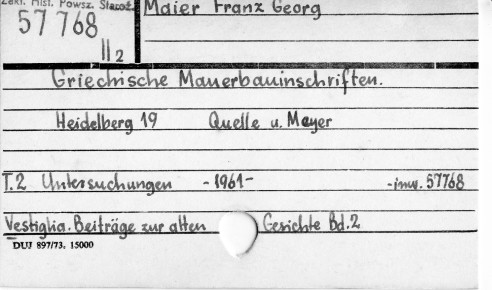 Zakł. Hist. Powsz. Staroż.
57768
II 2
Maier Franz Georg
Griechische Mauerbauinschriften.
Heidelberg 19 Quelle u. Meyer
T.2 Untersuchungen -1961- -inw. 57768
Vestiglia. Beiträge zur alten Gesichte Bd.2
DUJ 897/73. 15000